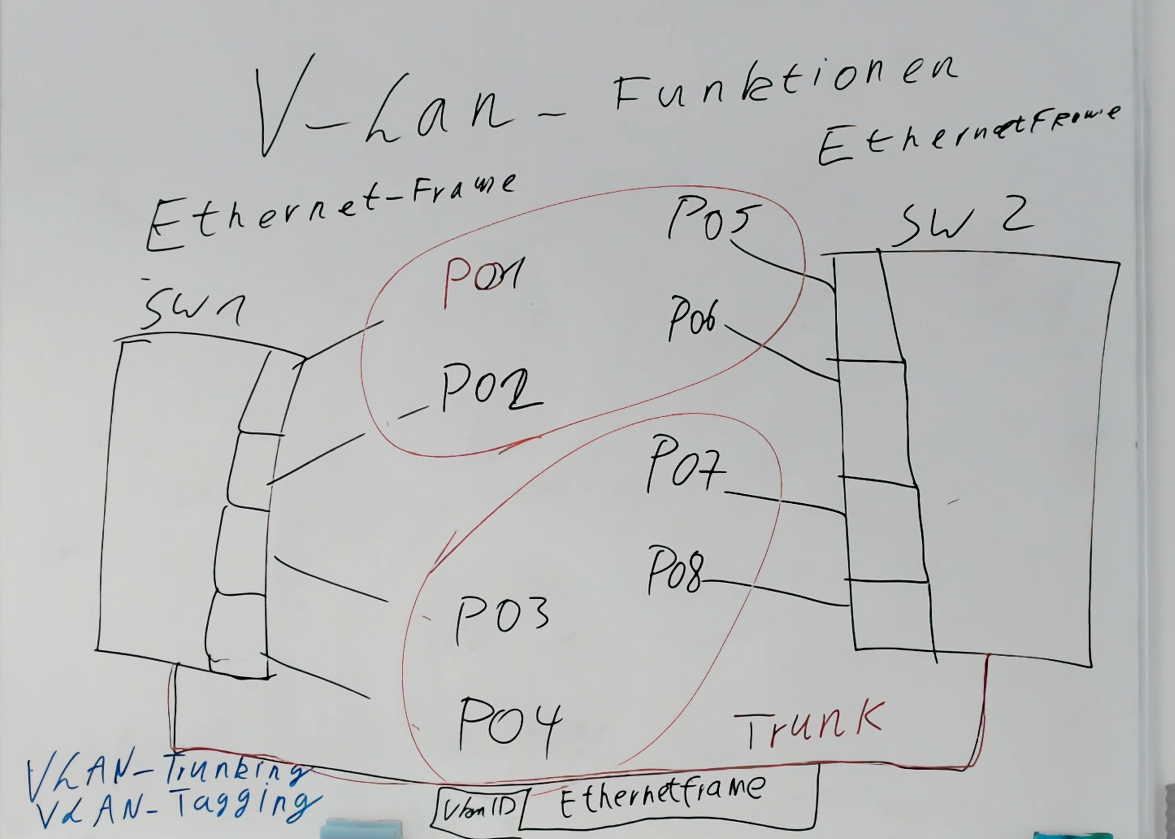 V-Lan-Funktionen
EthernetFrame
Ethernet-Frame
SW 2
SW1
P05
P01
P06
P02
P07
P08
P03
P04
Trunk
VLAN-Trunking
VLAN-Tagging
Vlan ID
Ethernetframe